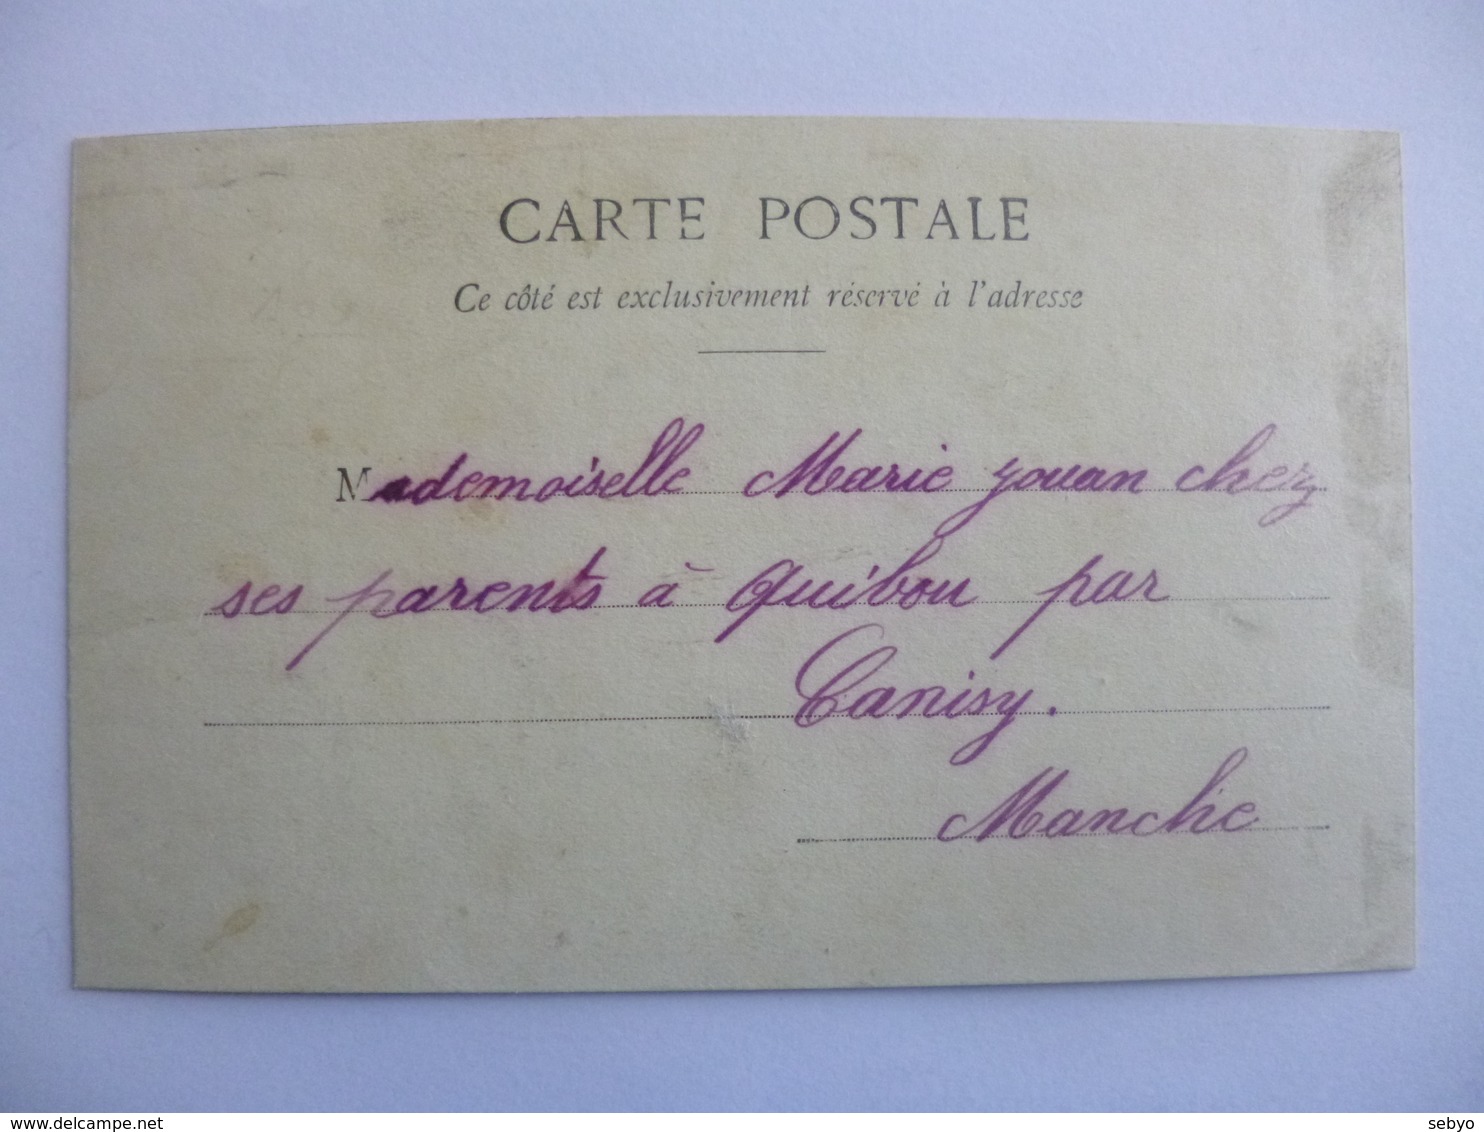 CARTE POSTALE
Ce côté est exclusivement réservé à l'adresse
Mademoiselle Marie Jouan chez
ses parents à Quibou par
Canisy.
Manche
delcampe.net
sebyo